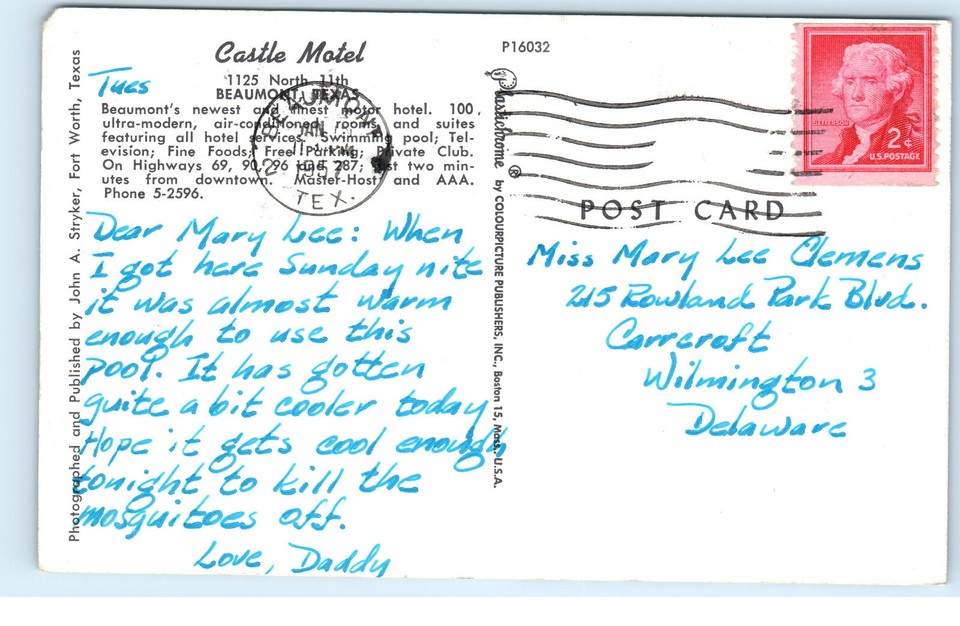 Castle Motel
1125 North 11th
BEAUMONT, TEXAS
Beaumont's newest and finest motor hotel. 100
ultra-modern, air-conditioned rooms and suites
featuring all hotel services. Swimming pool; Tel-
evision; Fine Foods; Free Parking; Private Club.
On Highways 69, 90, 96 and 287; just two min-
utes from downtown. Master-Host and AAA.
Phone 5-2596.
Tues
Dear Mary Lee: When
I got here Sunday nite
it was almost warm
enough to use this
pool. It has gotten
quite a bit cooler today
Hope it gets cool enough
tonight to kill the
mosquitoes off.
Love, Daddy
Photographed and Published by John A. Stryker, Fort Worth, Texas
BEAUMONT
JAN
PM
TEX.
P16032
Plastichrome ® by COLOURPICTURE PUBLISHERS, INC., Boston 15, Mass. U.S.A.
JEFFERSON
2¢
U.S. POSTAGE
POST CARD
Miss Mary Lee Clemens
215 Rowland Park Blvd.
Carrcroft
Wilmington 3
Delaware